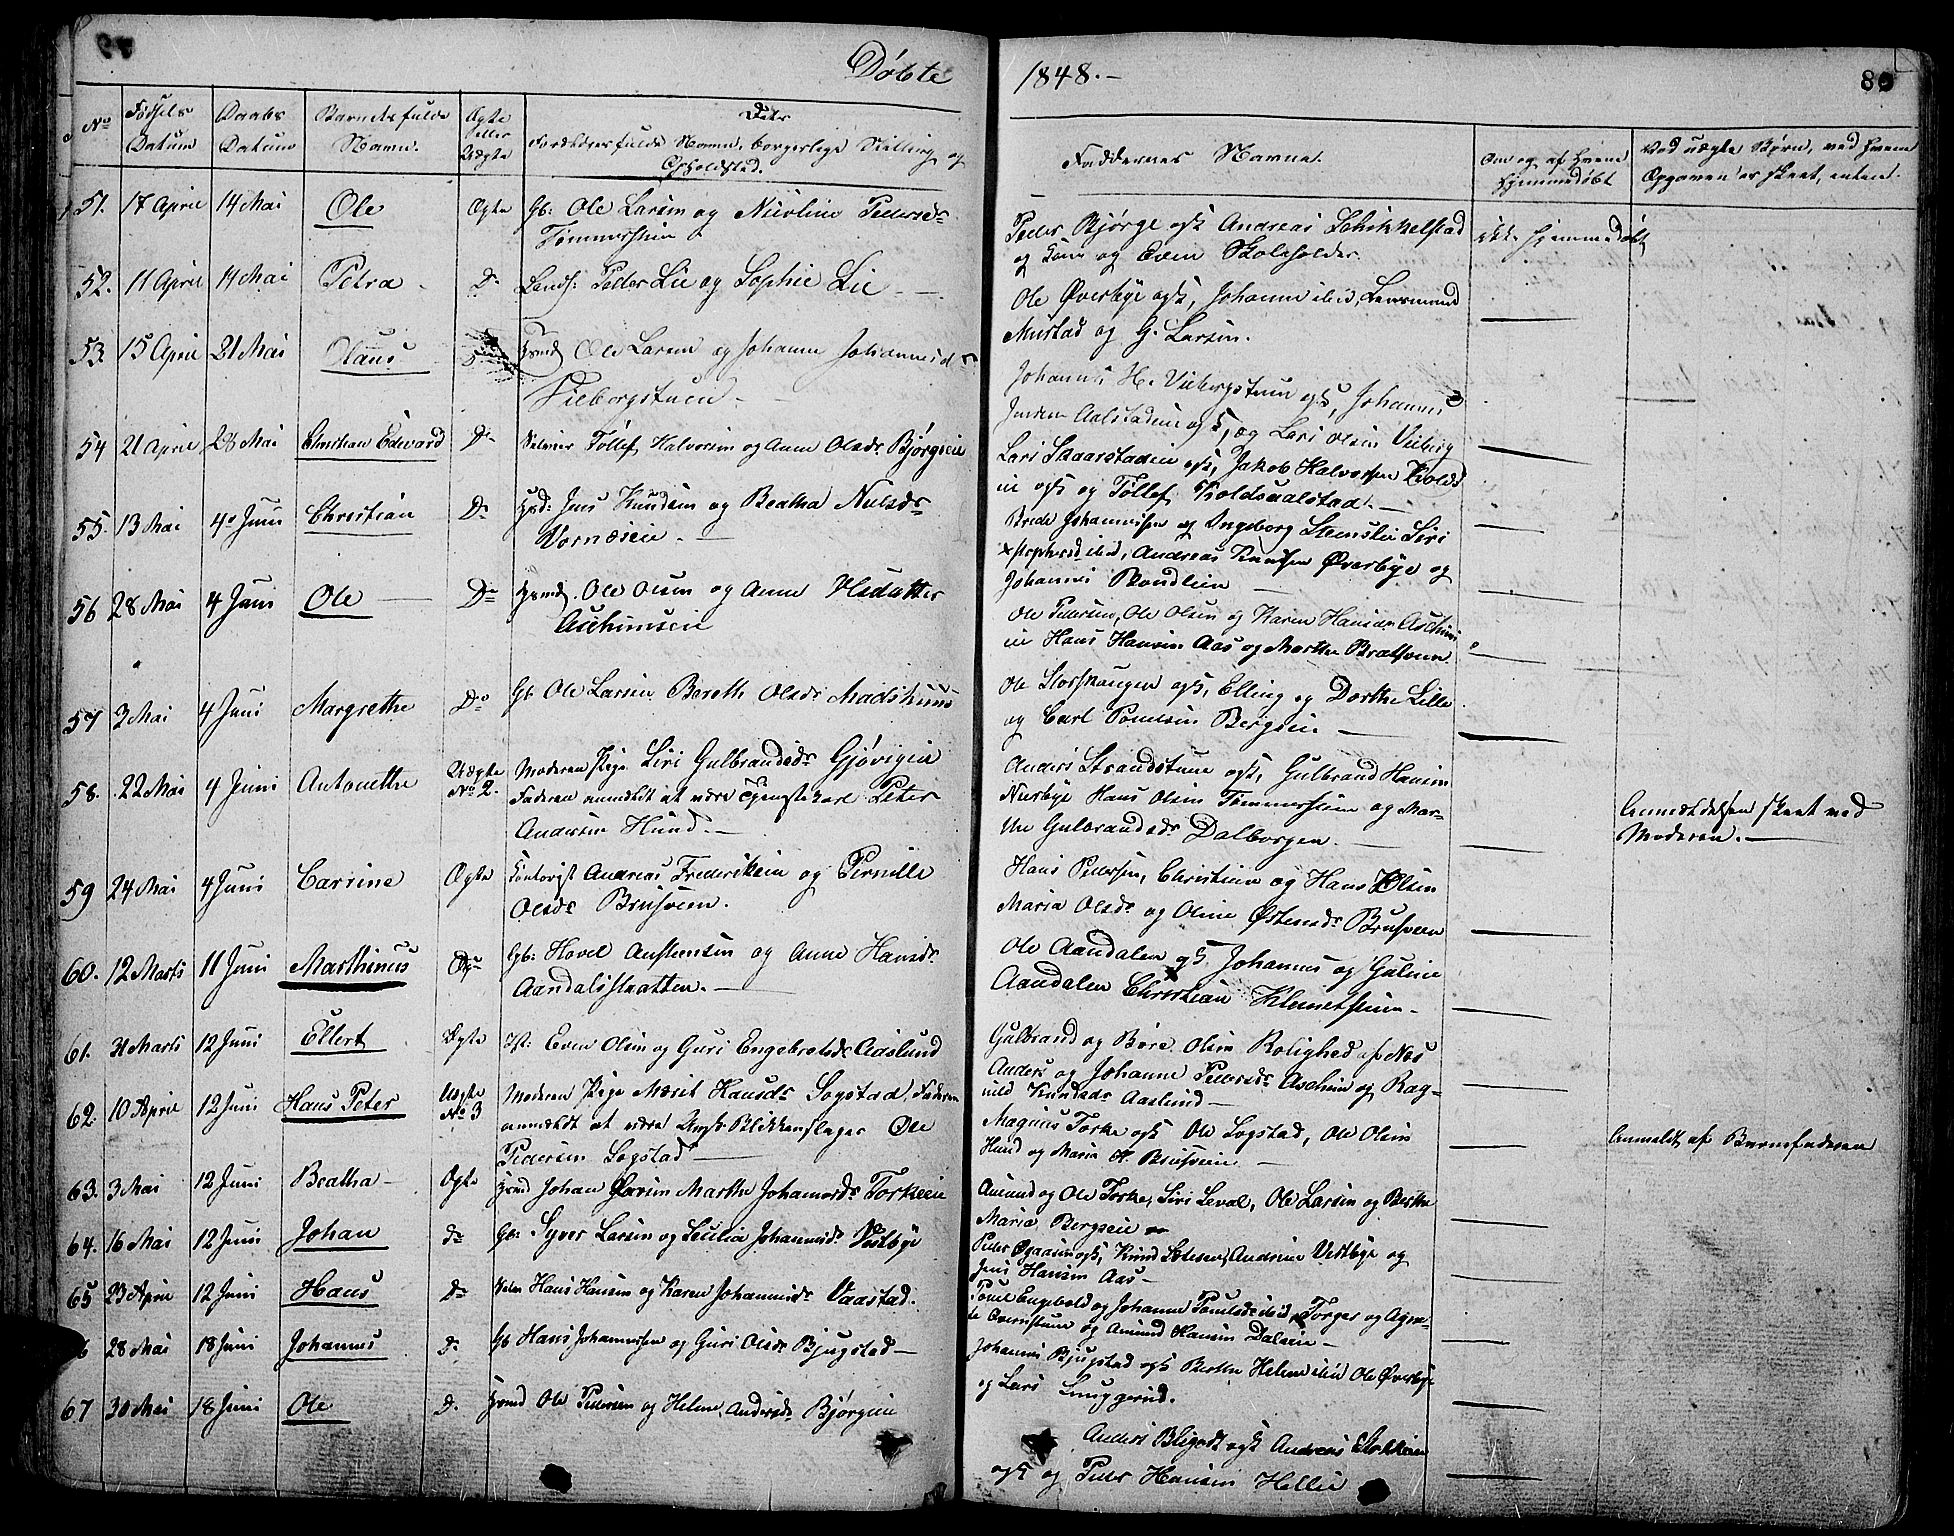 Døbte
1848.-
80
No
Fødsels Datum
Daabs Datum
Barnets fulde Navn.
Ægte eller Uægte
Dets Forældres fulde Navn, borgerlige Stilling og Opholdsted.
Faddernes Navne.
Om og af hvem hjemmedøbt
Ved uægte Børn, ved hvem Opgaven er skeet, enten
51. 17 April 14 Mai Ole Ægte Gb: Ole Larsen og Nicoline Pedersdr
Tømmerstuen
Peder Bjørge ogk Andreas Schikkelstad
og Kone og Even Skoleholder.
ikke hjemmedøbt
52. 11 April 14 Mai Petra Do Peder Lie og Sophie Lie
Ole Øverbye ogk, Johanne ibid, Lensmand
Mustad og G. Larsen.
53. 15 April 21 Mai Olaus Do Ole Larsen og Johanne Johannesd
Vieborgstuen
Johannes H. Viebergstuen ogk, Johannes
Aalstadeie ogk, og Lars Olsen Vieberg
54 21 April 28 Mai Christian Edvard Do Tøllef Halvorsen og Anne Olsdr Bjørgeeie
Lars Skaarstadeie ogk, Jakob Halvorsen
ogk og Tøllef
55. 13 Mai 4 Juni Christian Do Jens Knudsen og Beatha Nielsdr
Vornæseie.
Brede Johannesen og Ingeborg Siri
ibid, Andreas Knudsen Øverbye og
Johannes
56 28 Mai 4 Juni Ole Do Ole Olsen og Anne Olsdatter
Aschimseie
Ole Pedersen, Ole Olsen og Karen Hansdr Aschims
eie Hans Hansen Aas og Marthe Bratsveen
57 3 Mai 4 Juni Margrethe Do Gb Ole Larsen Berethe Olsdr Madshuus
Ole Storskaugen ogk, Elling og Dorthe Lille
og Carl Poulsen Bergseie
58. 22 Mai 4 Juni Antonette Uægte
No 2.
Moderen Pige Siri Gulbrandsdr Gjøvigeie
Faderen anmeldt at være Tjenestekarl Peter
Andersen Hund.
Anders Strandstuen ogk, Gulbrand Hansen
Hans Olsen Tømmerstuen og Mar-
the Gulbrandsdr Dalborgen.
Anmeldelsen skeet ved
Moderen.
59 24 Mai 4 Juni Carrine Ægte Contorist Andreas Frederiksen og Pernille
Olsdr Brusveen.
Hans Pedersen, Christian og Hans Olsen
Maria Olsdr og Oline Østensdr Brusveen
60. 12 Marts 11 Juni Marthinus Do Gb: Hovel Austensen og Anne Hansdr
Aandalsstratten.
Ole Aandalen ogk Johannes og Guline
Aandalen Christian Klemetseie
61. 31 Marts 12 Juni Ellert Ægte Even Olsen og Guri Engebretsdr Aaslund
Gulbrand og Børe Olsen Rolighed af Næs
Anders og Johanne Pedersdr Aschim og Rag-
nild Knudsdr Aaslund
62. 10 April 12 Juni Hans Peter Uægte
No 3
Moderen Pige Marit Hansdr Sogstad, Faderen
anmeldt at være Blikkenslager Ole
Pedersen Sogstad
Magnus Torke ogk Ole Sogstad, Ole Olsen
Hund og Maria A. Brusveen
Anmeldt af Barnefaderen
63. 3 Mai 12 Juni Beatha Ægte Johan Larsen Marthe Johannesdr Torkeeie
Amund og Ole Torke, Siri Leval, Ole Larsen og Berthe
Maria Bergseie
64. 16 Mai 12 Juni Johan do Gb: Syver Larsen og Cecilia Johannesdr Vestbye
Peder ogk, Knud Andrine Vestbye og
Jens Hansen Aas
65 23 April 12 Juni Hans Do Hans Hansen og Karen Johannesdr Vaastad.
Poul Engebold og Johanne Poulsdr ibid, Torger og Agne-
te og Amund Hansen Daleie
28 Mai 18 Juni Johannes do Gb Hans Johannessen og Guri Olsdr Bjugstad
Johannes Bjugstad ogk Berthe Helene ibid Ole Øverbye
og Lars Snuggerud.
67 30 Mai 18 Juni Ole D. Ole Pedersen og Helene Andersdr Bjørgeeie
Anders Bligodt ogk Andreas
ogk og Peder Hansen Hellie